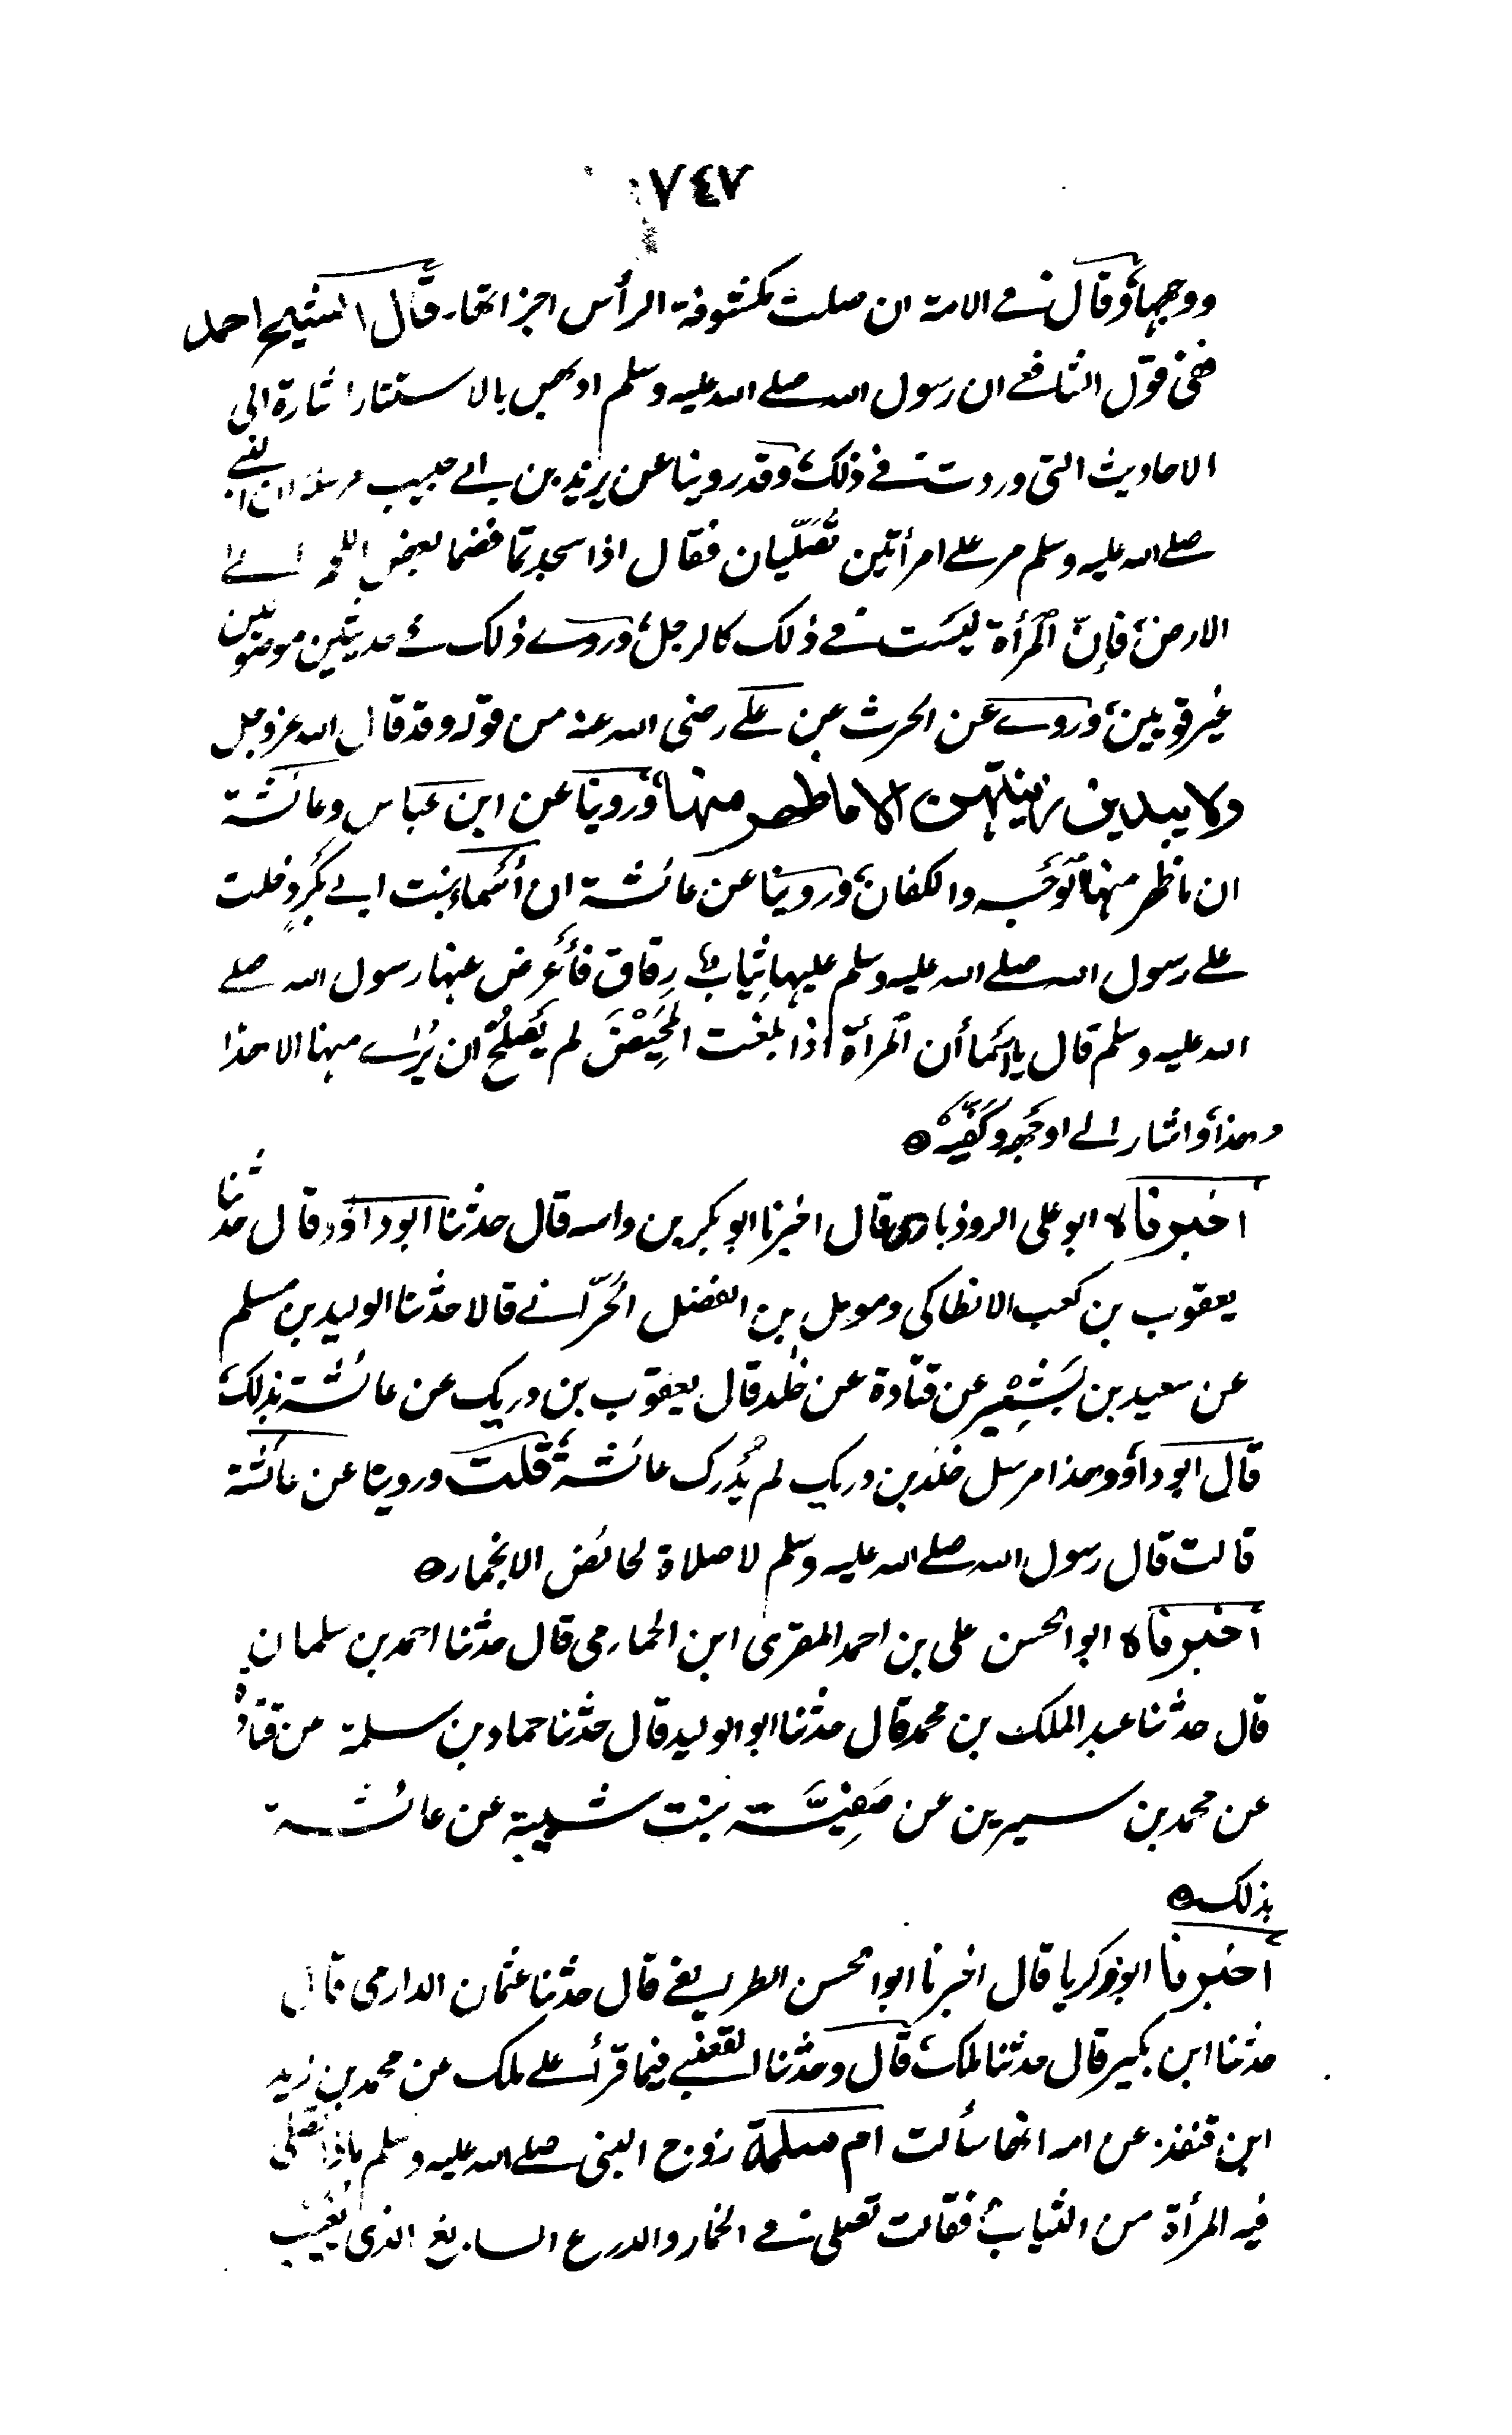 ٧٤٧
ووجهها وقال في الامة ان صلت مكشوفة الرأس اجزاتها. قال الشيخ احمد
ففي قول الشافعي ان رسول الله صلى الله عليه وسلم ادبهن بالاستتار اشارة الى
الاحاديث التي وردت في ذلك وقد روينا عن يزيد بن ابي حبيب مرسلا ان النبي
صلى الله عليه وسلم مر على امرأتين تُصَلّيان فقال اذا سجدتما فضما بعض اللحم الى
الارض، فإنّ المرأة ليست في ذلك كالرجل، وروى ذلك في حديثين موصولين
غير قويين، وروى عن الحرث عن على رضى الله عنه من قوله وقد قال الله عزوجل
ولا يبدين زينتهن الا ما ظهر منها وروينا عن ابن عباس وعائشة
ان ما ظهر منها الوجه والكفان، وروينا عن عائشة ان أسماء بنت ابى بكر دخلت
على رسول الله صلى الله عليه وسلم عليها ثياب رِقاق فأعرض عنها رسول الله صلى
الله عليه وسلم قال يا اسما أن المرأة اذا بلغت المحِيْضَ لم يَصلُح ان يُرى منها الا هذا
وهذا، واشار الى وجهه وكفّيه ه
أخبرناه ابو على الروذبارى قال اخبرنا ابو بكر بن داسه قال حدثنا ابو داؤد قال حدثنا
يعقوب بن كعب الانطاكى ومومل بن الفضل الحَرّانى قالا حدثنا الوليد بن مسلم
عن سعيد بن بَشِيْر عن قتادة عن خٰلد قال يعقوب بن دريك عن عائشة بذلك
قال ابو داؤد وهذا مرسل خٰلد بن دريك لم يُدرك عائشة، قلت وروينا عن عائشة
قالت قال رسول الله صلى الله عليه وسلم لا صلاة لحائض الا بخمار ه
أخبرناه ابو الحسن على بن احمد المقرى ابن الحمامى قال حدثنا احمد بن سلمان
قال حدثنا عبد الملك بن محمد قال حدثنا ابو الوليد قال حدثنا حماد بن سلمة عن قتادة
عن محمد بن سيرين عن صَفِيَّة بنت شيبة عن عائشة
بذلك ه
أخبرنا ابو زكريا قال اخبرنا ابو الحسن الطريفى قال حدثنا عثمان الدارمى قال
حدثنا ابن بكير قال حدثنا ملك، قال وحدثنا القعنبى فيما قرأ على ملك عن محمد بن زيد
ابن قنفذ عن امه انها سألت ام سلمة زوج النبى صلى الله عليه وسلم ماذا تصلى
فيه المرأة من الثياب، فقالت تصلى فى الخمار والدرع السابغ الذى يُغَيِّب